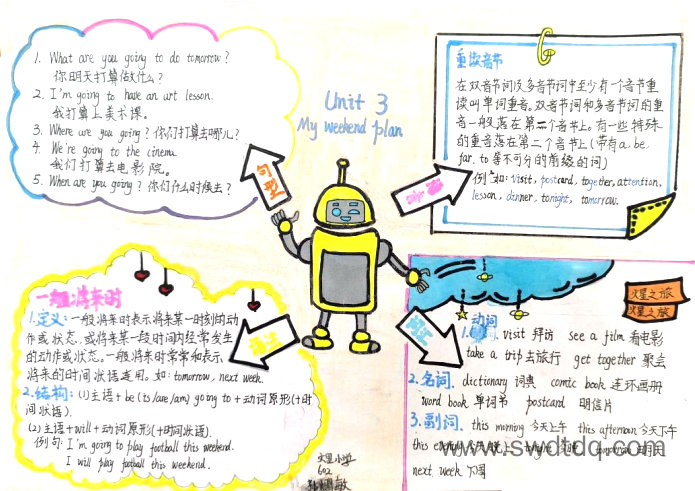 Unit 3
My weekend plan
1. What are you going to do tomorrow?
你明天打算做什么?
2. I'm going to have an art lesson.
我打算上美术课。
3. Where are you going? 你们打算去哪儿?
4. We're going to the cinema.
我们打算去电影院。
5. When are you going? 你们什么时候去?
句型
重读音节
在双音节词及多音节词中至少有一个音节重
读叫单词重音。双音节词和多音节词的重
音一般落在第一个音节上。有一些特殊
的重音落在第二个音节上(带有a. be
far. to等不可分的前缀的词)
例如: visit, postcard, together, attention,
lesson, dinner, tonight, tomorrow.
一般将来时
1.定义: 一般将来时表示将来某一时刻的动
作或状态, 或将来某一段时间内经常发生
的动作或状态。一般将来时常常和表示
将来的时间状语连用。如: tomorrow, next week.
2.结构: (1)主语+be (is/are/am) going to +动词原形(+时
间状语).
(2)主语+will+动词原形(+时间状语).
例句: I'm going to play football this weekend.
I will play football this weekend.
语法
词汇
火星之旅
火星之旅
动词
1. visit 拜访 see a film 看电影
take a trip 去旅行 get together 聚会
2.名词. dictionary 词典 comic book 连环画册
word book 单词书 postcard 明信片
3.副词. this morning 今天上午 this afternoon 今天下午
this evening tonight tomorrow 明天
next week 下周
602
www.swdtdq.com